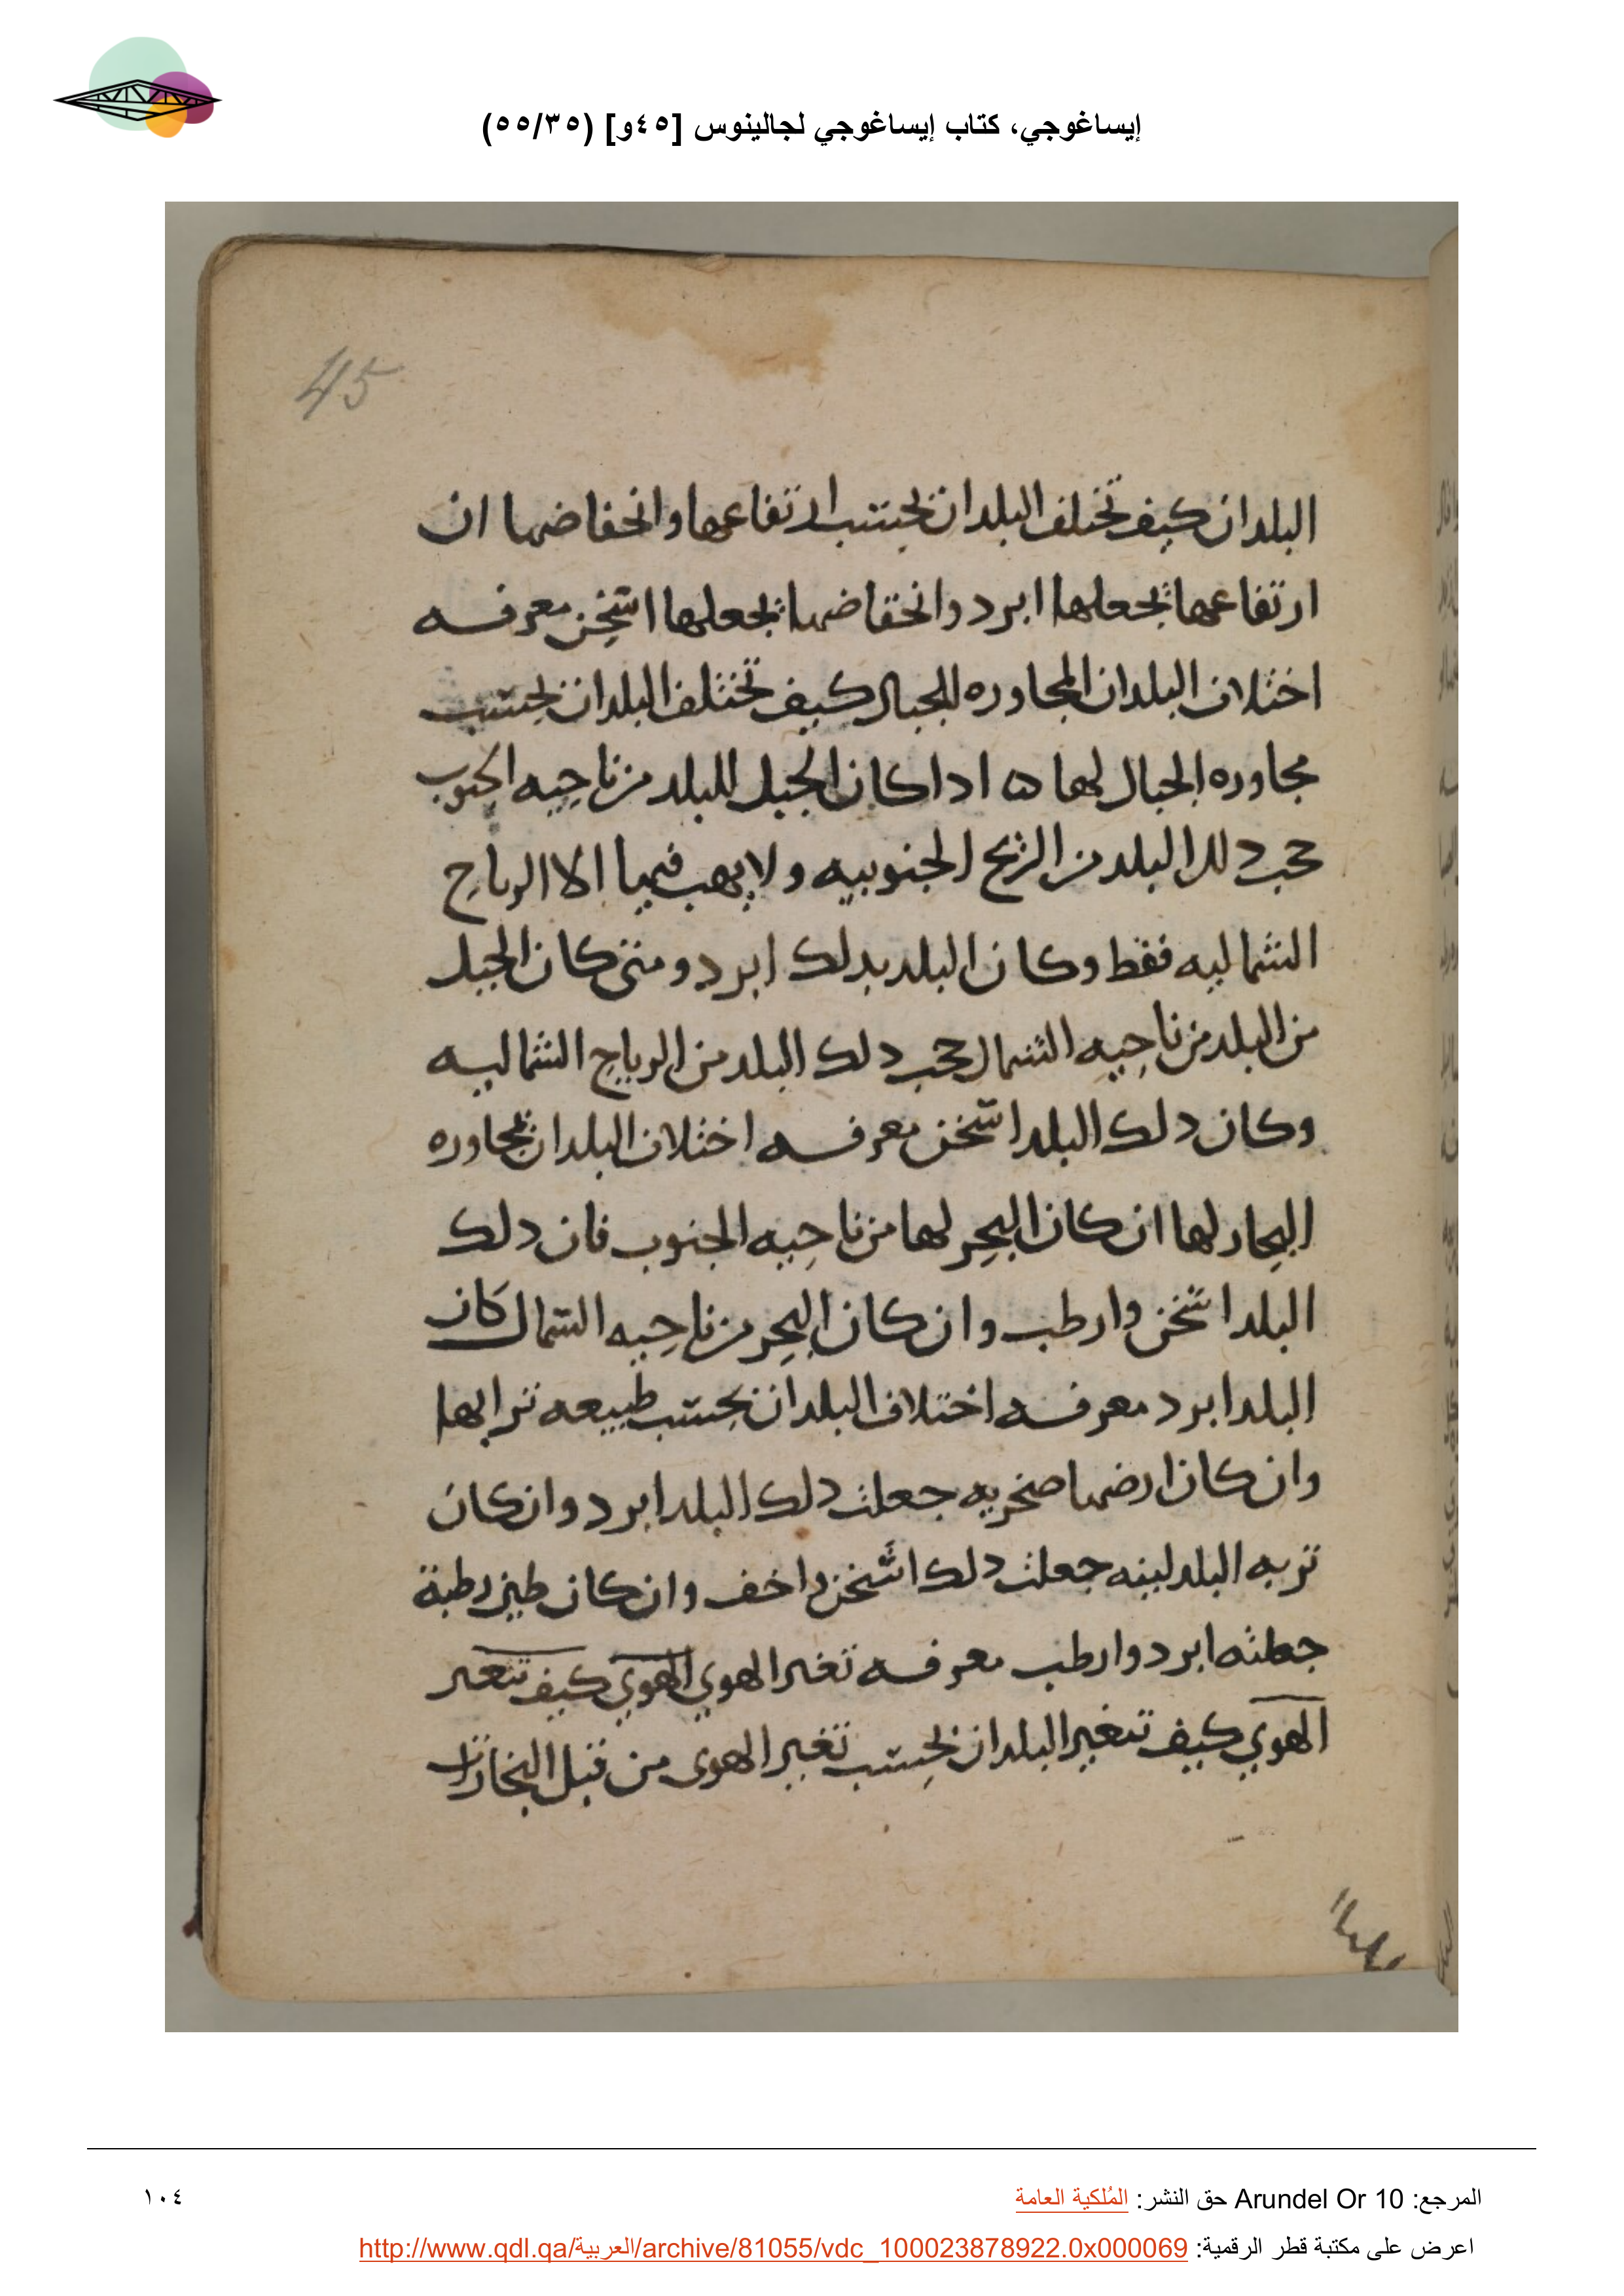 إيساغوجي، كتاب إيساغوجي لجالينوس [٤٥و] (٥٥/٣٥)
45
البلدان كيف تختلف البلدان بحسب ارتفاعها وانخفاضها ان
ارتفاعها تجعلها ابرد وانخفاضها تجعلها اسخن معرفه
اختلاف البلدان المجاوره للجبال كيف تختلف البلدان بحسب
مجاوره الجبال لها ه ادا كان الجبل للبلد من ناحيه الجنوب
حجب دلك البلد من الريح الجنوبيه ولا يهب فيها الا الرياح
الشماليه فقط وكان البلد بدلك ابرد ومتى كان الجبل
من البلد من ناحيه الشمال حجب دلك البلد من الرياح الشماليه
وكان دلك البلد اسخن معرفه اختلاف البلدان بمجاوره
البحار لها ان كان البحر لها من ناحيه الجنوب فان دلك
البلد اسخن وارطب وان كان البحر من ناحيه الشمال كان
البلد ابرد معرفه اختلاف البلدان بحسب طبيعه ترابها
وان كان ارضها صخريه جعلت دلك البلد ابرد وان كان
تربه البلد لينه جعلت دلك اسخن واخف وان كان طين رطبة
جعلته ابرد وارطب معرفه تغير الهوي الهوي كيف تتغير
الهوي كيف تتغير البلدان بحسب تغير الهوى من قبل البخارات
المرجع: Arundel Or 10 حق النشر: المُلكية العامة
١٠٤
اعرض على مكتبة قطر الرقمية: http://www.qdl.qa/العربية/archive/81055/vdc_100023878922.0x000069